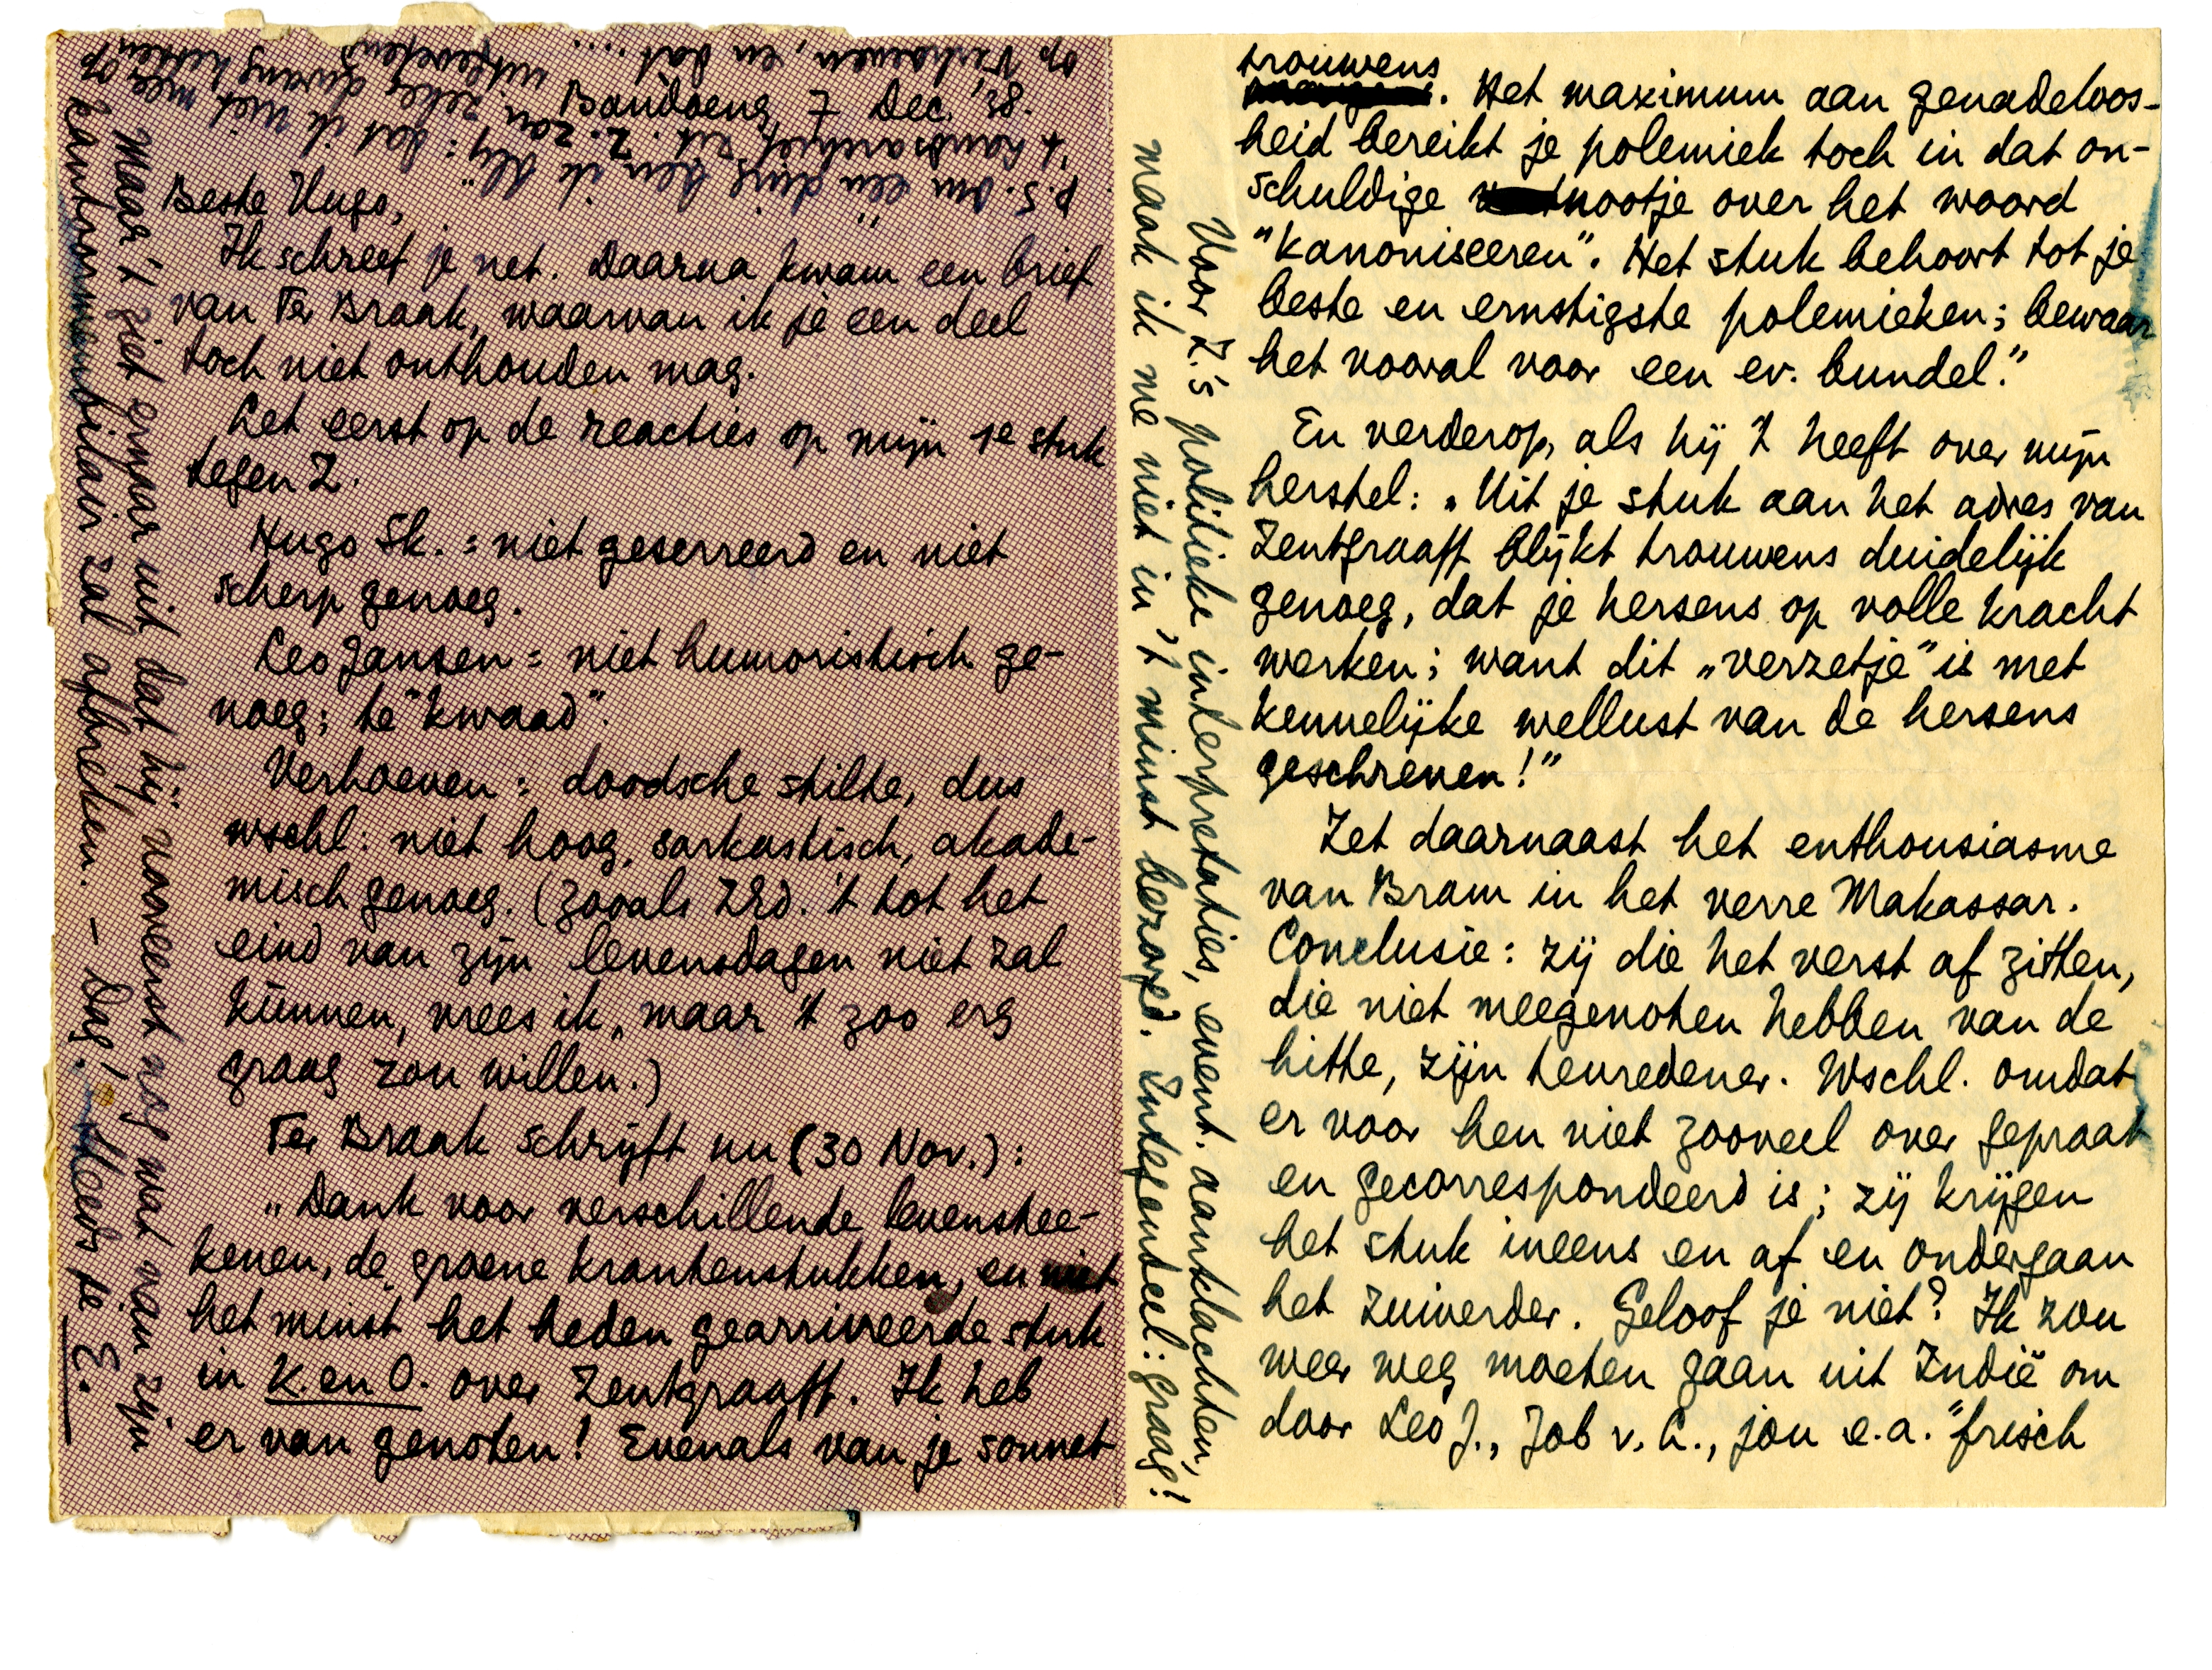 Bandoeng, 7 Dec. 38.
Beste Hugo,
Ik schreef je net. Daarna kwam een brief
van Ter Braak, waarvan ik je een deel
toch niet onthouden mag.
Let eerst op de reacties op mijn 1e stuk
tegen Z.
Hugo Sk. = niet geserreerd en niet
scherp genoeg.
Leo Jansen = niet humoristisch ge-
noeg; te "kwaad".
Verhoeven = doodsche stilte, dus
wschl: niet hoog, sarkastisch, akade-
misch genoeg. (Zooals ZEd. 't tot het
eind van zijn levensdagen niet zal
kunnen, vrees ik, maar 't zoo erg
graag zou willen.)
Ter Braak schrijft nu (30 Nov.):
"Dank voor verschillende levenstee-
kenen, de groene krantenstukken, en niet
het minst het heden gearriveerde stuk
in K. en O. over Zentgraaff. Ik heb
er van genoten! Evenals van je sonnet
trouwens. Het maximum aan genadeloos-
heid bereikt je polemiek toch in dat on-
schuldige nootje over het woord
"kanoniseeren". Het stuk behoort tot je
beste en ernstigste polemieken; bewaar
het vooral voor een ev. bundel."
En verderop, als hij 't heeft over mijn
herstel: "Uit je stuk aan het adres van
Zentgraaff blijkt trouwens duidelijk
genoeg, dat je hersens op volle kracht
werken; want dit "verzetje" is met
kennelijke wellust van de hersens
geschreven!"
Zet daarnaast het enthousiasme
van Bram in het verre Makassar.
Conclusie: zij die het verst af zitten,
die niet meegenoten hebben van de
hitte, zijn tevredener. Wschl. omdat
er voor hen niet zooveel over gepraat
en gecorrespondeerd is; zij krijgen
het stuk ineens en af en ondergaan
het zuiverder. Geloof je niet? Ik zou
weer weg moeten gaan uit Indië om
door Leo J., Job v. L., jou e.a. "frisch
Voor Z.'s politieke interpretaties, event. aanklachten,
maak ik me niet in 't minst bezorgd. Integendeel: graag!
Maar 't ziet ernaar uit dat hij vooreerst nog wat aan zijn
kantonnementair zal afbreken. – Dag! Steeds je E.
P.S. Om een ding ben ik blij: dat ik niet mee op
't Landsarchief zit. Z. zou zeker
op Verhoeven, en dat ...